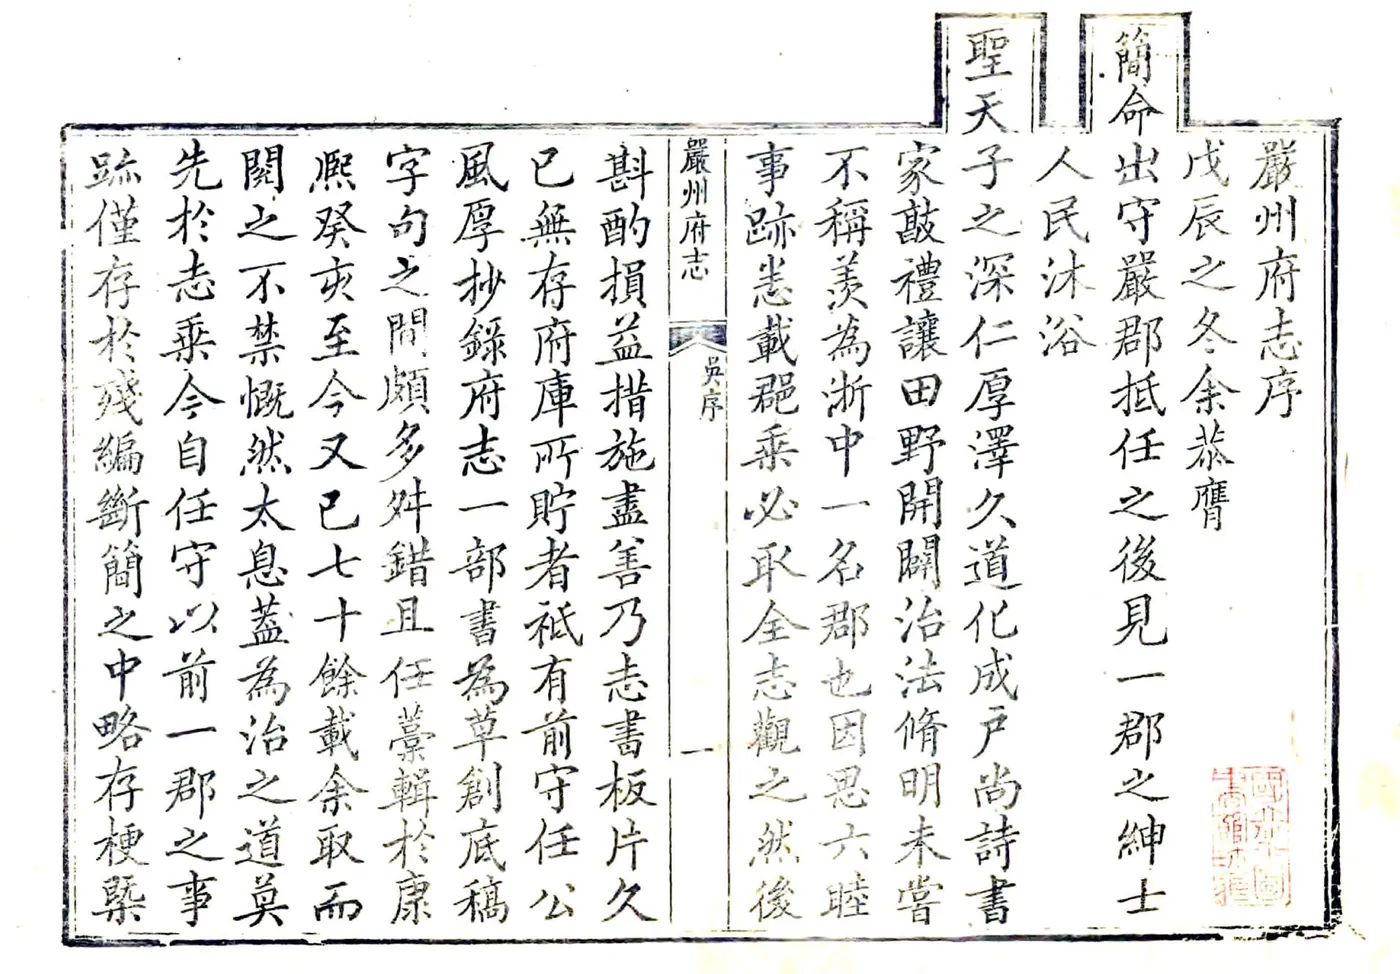 嚴州府志序
戊辰之冬余恭膺
簡命出守嚴郡抵任之後見一郡之紳士
人民沐浴
聖天子之深仁厚澤久道化成戶尚詩書
家敦禮讓田野開闢治法脩明未嘗
不稱羨為浙中一名郡也因思六睦
事跡悉載郡乗必取全志觀之然後
嚴州府志
吳序
一
斟酌損益措施盡善乃志書板片久
已無存府庫所貯者袛有前守任公
風厚抄錄府志一部書為草創底稿
字句之間頗多舛錯且任藁輯於康
熈癸亥至今又已七十餘載余取而
閱之不禁慨然太息葢為治之道莫
先於志乗今自任守以前一郡之事
跡僅存於殘編斷簡之中略存梗槩